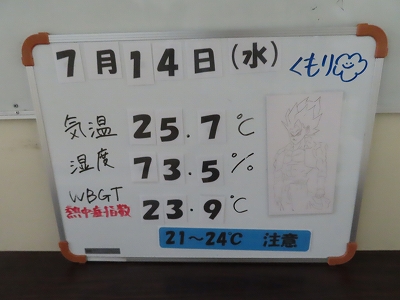 7月14日(水) くもり
気温 25.7℃
湿度 73.5%
WBGT
熱中症指数 23.9℃
21〜24℃ 注意